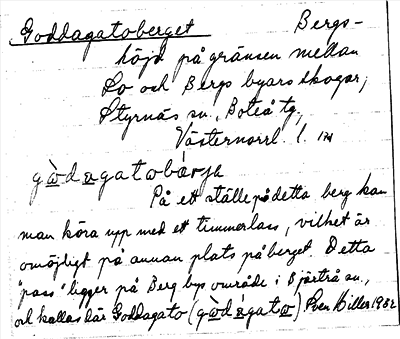 Goddagatoberget Bergs-
höjd på gränsen mellan
Lo och Bergs byars skogar,
Styrnäs sn., Boteå tg,
Västernorrl. l.
gòdagatobárja
På ett ställe på detta berg kan
man köra upp med ett timmerlass, vilket är
omöjligt på annan plats på berget. Detta
"pass" ligger på Berg bys område i Bjärtrå sn.,
och kallas där Goddagato (gòdagato) Sven Hiller 1932